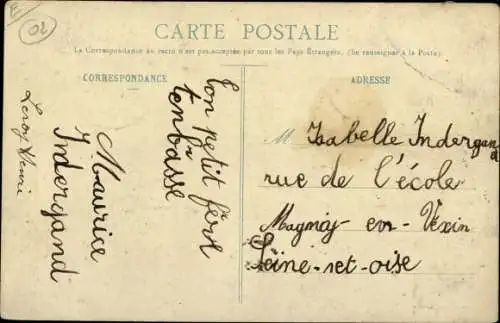 E
02
CARTE POSTALE
La Correspondance au recto n'est pas acceptée par tous les Pays Étrangers. (Se renseigner à la Poste).
CORRESPONDANCE
ADRESSE
Ton petit fère
tenbrasse
Maurice
Indergand
Leroy Henri
M Isabelle Indergand
rue de l'école
Magny en Vexin
Seine-net-oise